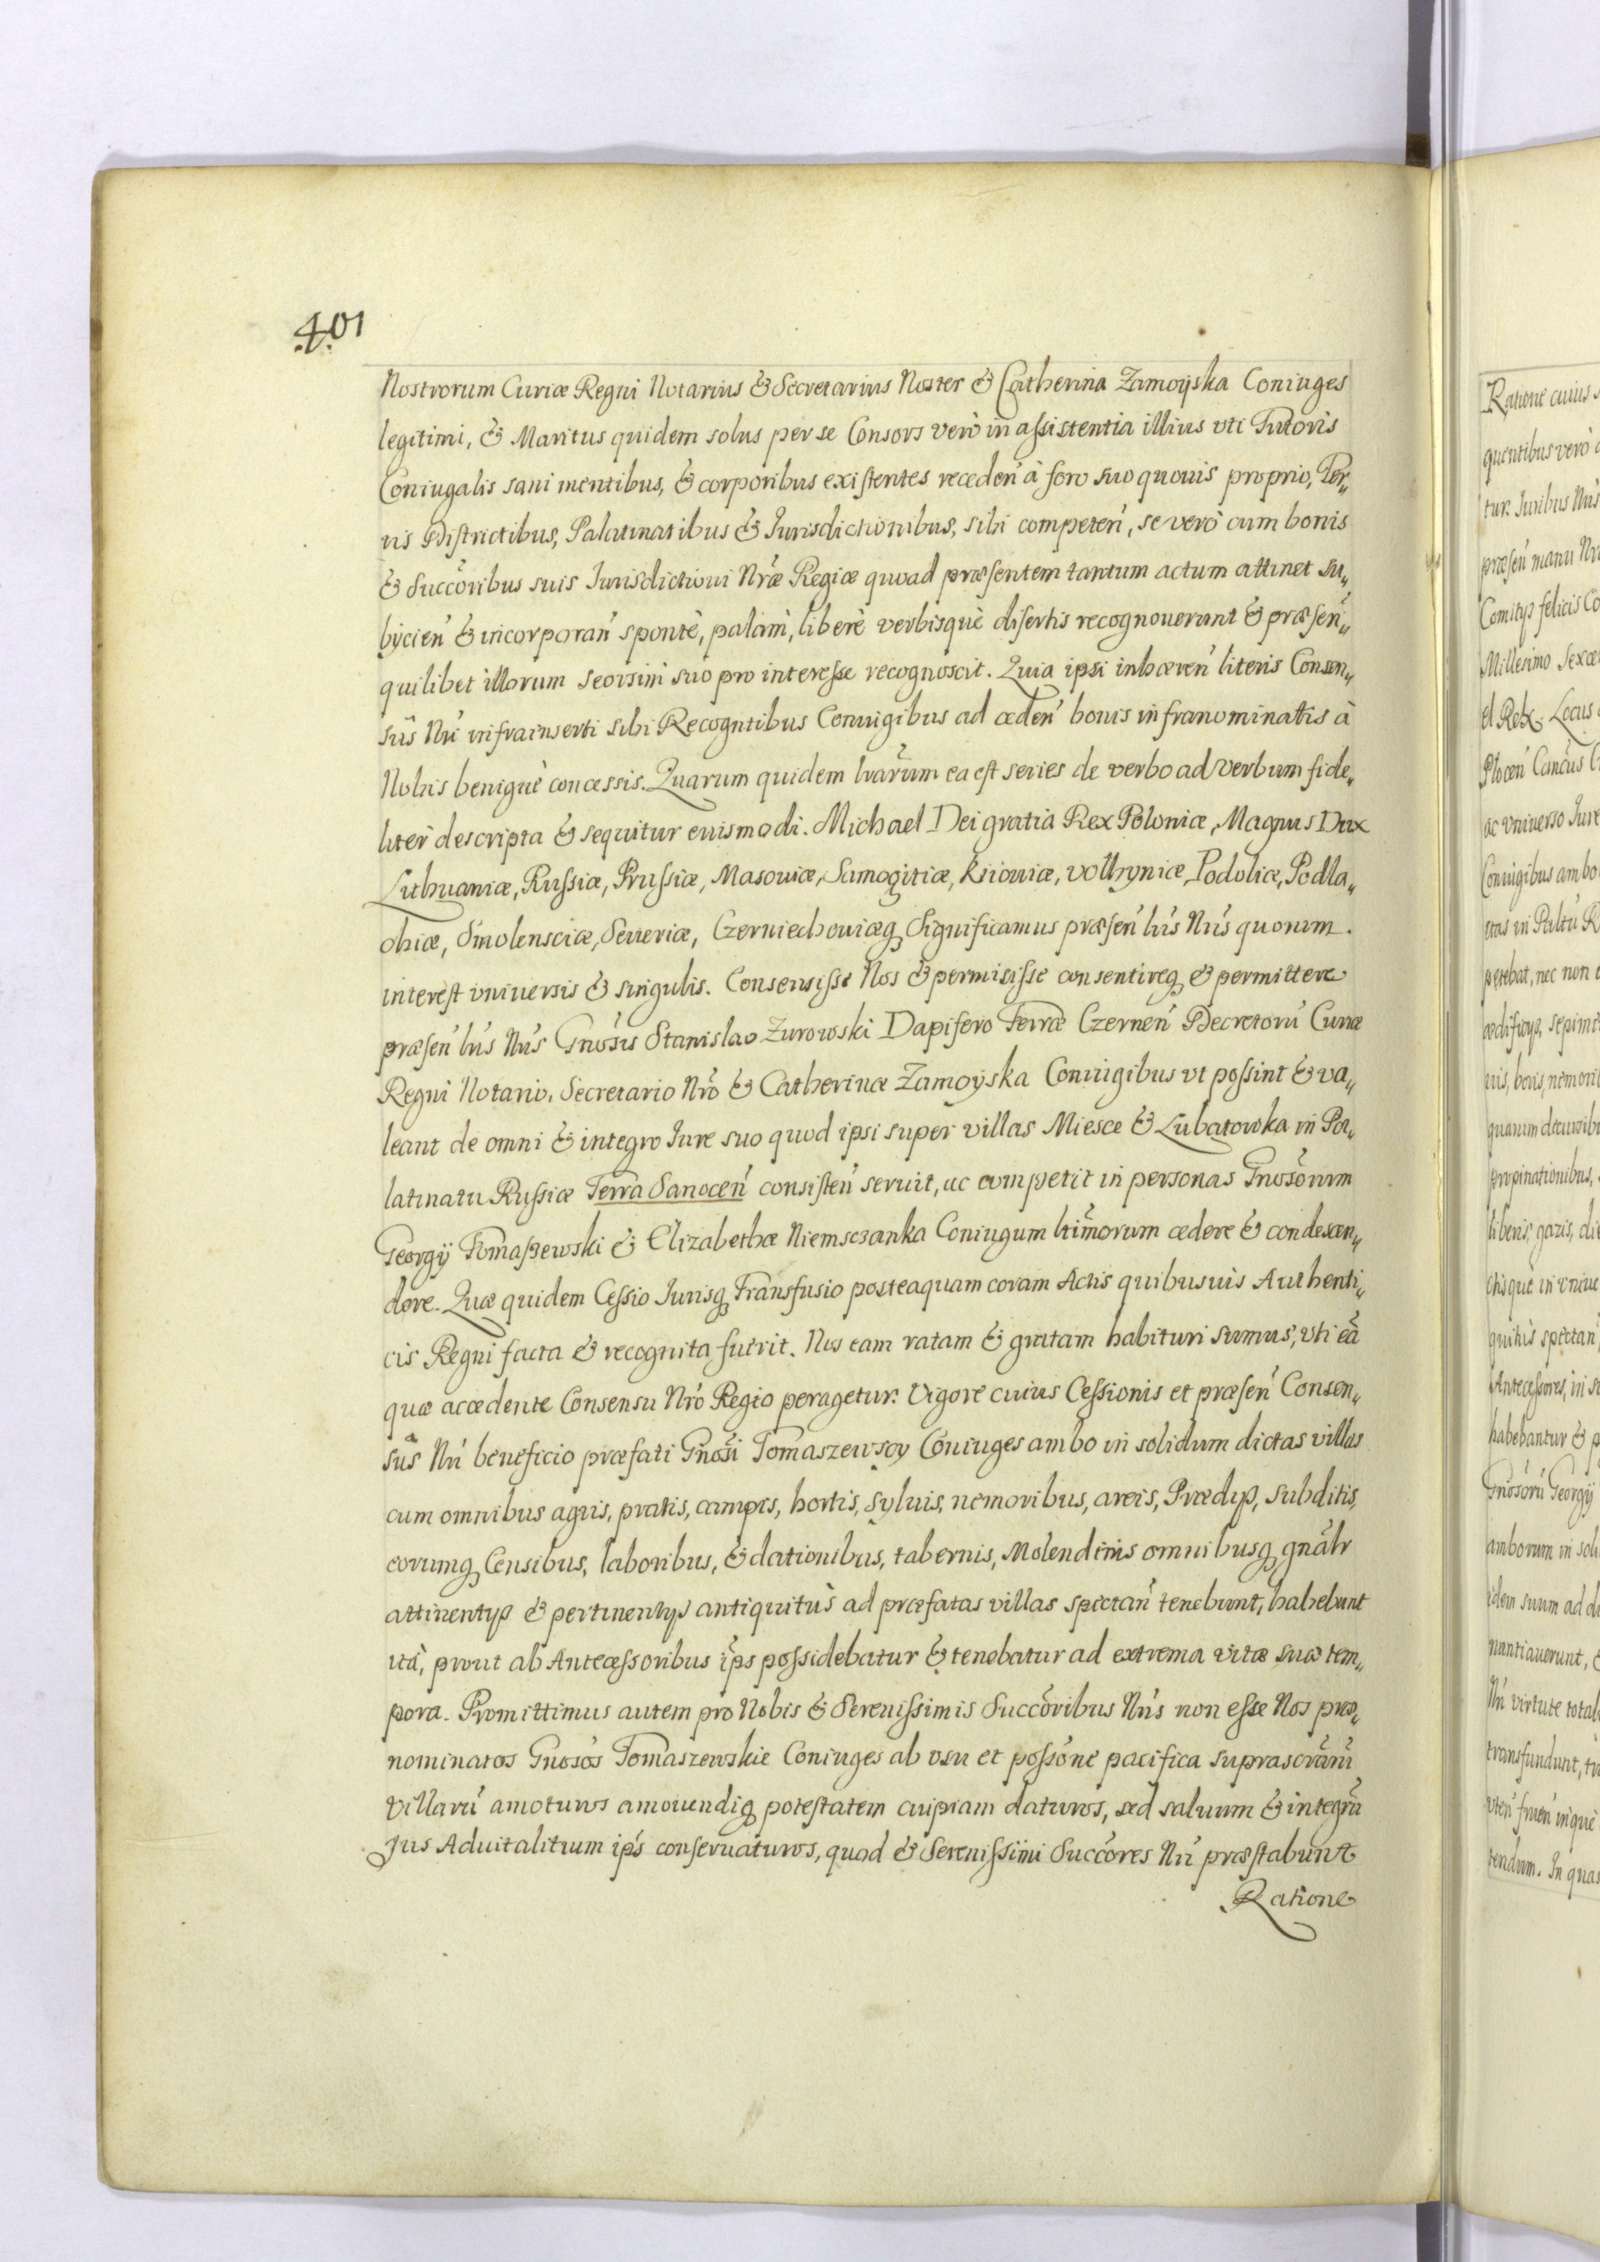 401
Nostrorum Curiæ Regni Notarius & Secretarius Noster & Catherina Zamoÿska Coniuges
legitimi, & Maritus quidem solus per se Consors verò in assistentia illius vti Tutoris
Coniugalis sani mentibus, & corporibus existentes receden̄ à foro suo quouis proprio, Ter„
ris Districtibus, Palatinatibus & Jurisdictionibus, sibi competen̄, se verò cum bonis
& Succōribus suis Jurisdictioni Nr̄æ Regiæ quoad præsentem tantum actum attinet su„
bÿcien̄ & incorporan̄ spontè, palàm, liberè verbisquè disertis recognouerunt & præsen̄„
quilibet illorum seorsim suo pro interesse recognoscit. Quia ipsi inhæren̄ literis Consen„
sûs Nr̄i infrainserti sibi Recogntibus Coniugibus ad ceden̄ bonis infranominatis à
Nobis benignè concessis. Quarum quidem lrārum ea est series de verbo ad verbum fide„
liter descripta & sequitur euismodi. Michael Dei gratia Rex Poloniæ, Magnus Dux
Lithuaniæ, Russiæ, Prussiæ, Masouiæ, Samogitiæ, Kiiouiæ, volhyniæ, Podoliæ, Podla„
chiæ, Smolensciæ, Seueriæ, Czerniechouiæq; Significamus præsen̄ lr̄is Nr̄is quorum
interest vniuersis & singulis. Consensisse Nos & permisisse consentireq; & permittere
præsen̄ lr̄is Nr̄is Gnōsis Stanislao Zurowski Dapifero Terræ Czernen̄ Decretorū Curiæ
Regni Notario, Secretario Nr̄o & Catherinæ Zamoÿska Coniugibus vt possint & va„
leant de omni & integro Jure suo quod ipsi super villas Miesce & Lubatowka in Pa„
latinatu Russiæ Terra Sanocen̄ consisten̄ seruit, ac competit in personas Gnosōrum
Georgÿ Tomaszewski & Elizabethæ Niemsczanka Coniugum ltīmorum cedere & condescen„
dere. Quæ quidem Cessio Jurisq; Transfusio posteaquam coram Actis quibusuis Authenti„
cis Regni facta & recognita fuerit. Nos eam ratam & gratam habituri sumus, vti eā
quæ accedente Consensu Nr̄o Regio peragetur. Vigore cuius Cessionis et præsen̄ Consen„
sûs Nr̄i beneficio præfati Gnōsi Tomaszewscy Coniuges ambo in solidum dictas villas
cum omnibus agris, pratis, campis, hortis, syluis, nemoribus, areis, Prædÿs, subditis,
eorumq; Censibus, laboribus, & dationibus, tabernis, Molendinis omnibusq; gnālr
attinentÿs & pertinentÿs antiquitùs ad præfatas villas spectan̄ tenebunt, habebunt
ità, prout ab Antecessoribus ip̄s possidebatur & tenebatur ad extrema vitæ suæ tem„
pora. Promittimus autem pro Nobis & Serenissimis Succōribus Nr̄is non esse Nos præ„
nominatos Gnosōs Tomaszewskie Coniuges ab vsu et possōne pacifica suprascrārū
Villarū amoturos amouendiq; potestatem cuipiam daturos, sed saluum & integrū
Jus Aduitalitium ip̄s conseruaturos, quod & Serenissimi Succōres Nr̄i præstabunt
Ratione